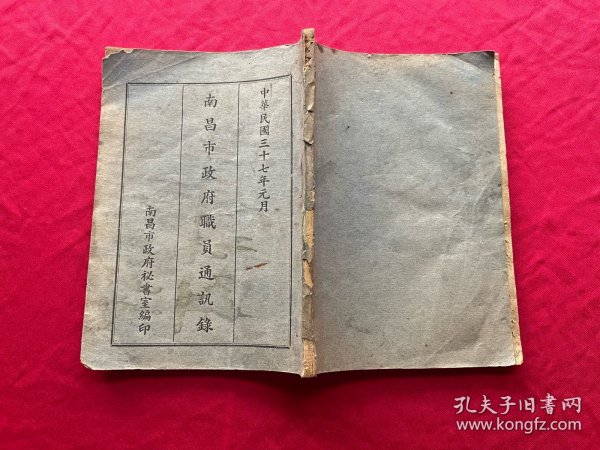 中華民國三十七年元月
南昌市政府職員通訊錄
南昌市政府祕書室編印
孔夫子旧书网
www.kongfz.com